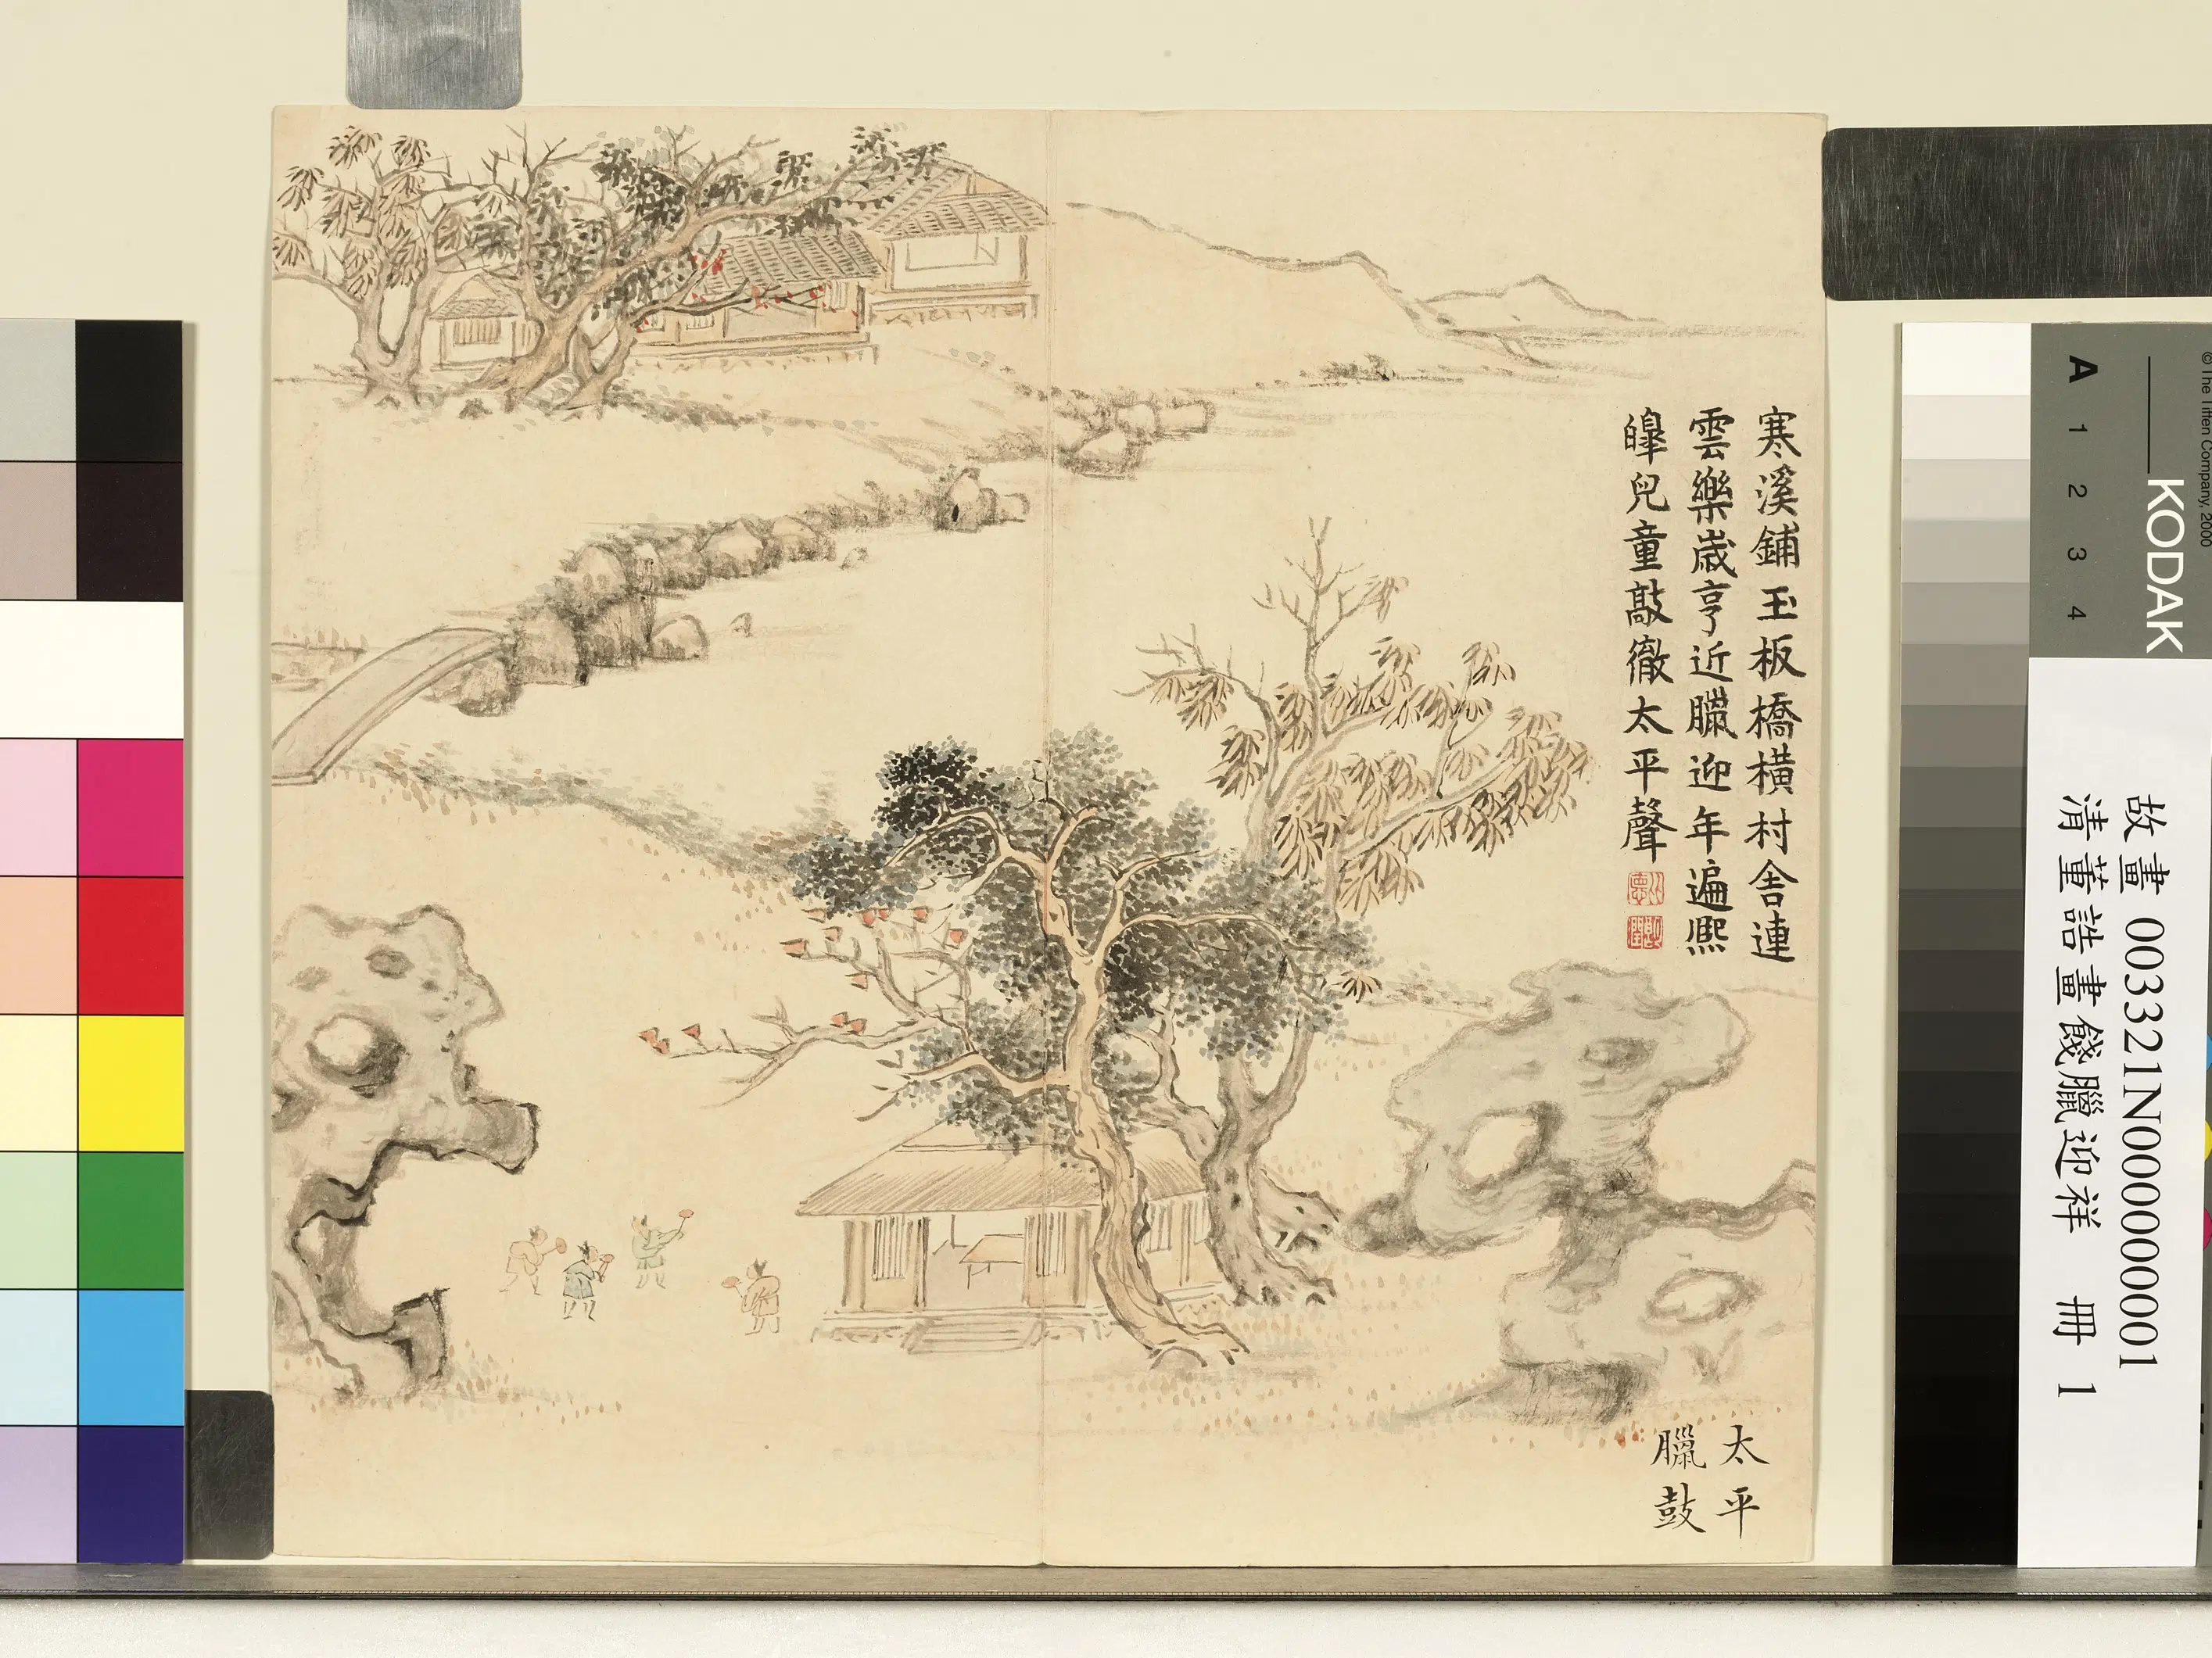 寒溪鋪玉板橋橫村舍連
雲樂歲亨近臘迎年遍熙
皞兒童敲徹太平聲
太平
臘鼓
故畫 003321N000000001
清董誥畫餞臘迎祥 冊 1
KODAK
A 1 2 3 4
©The Tiffen Company, 2000